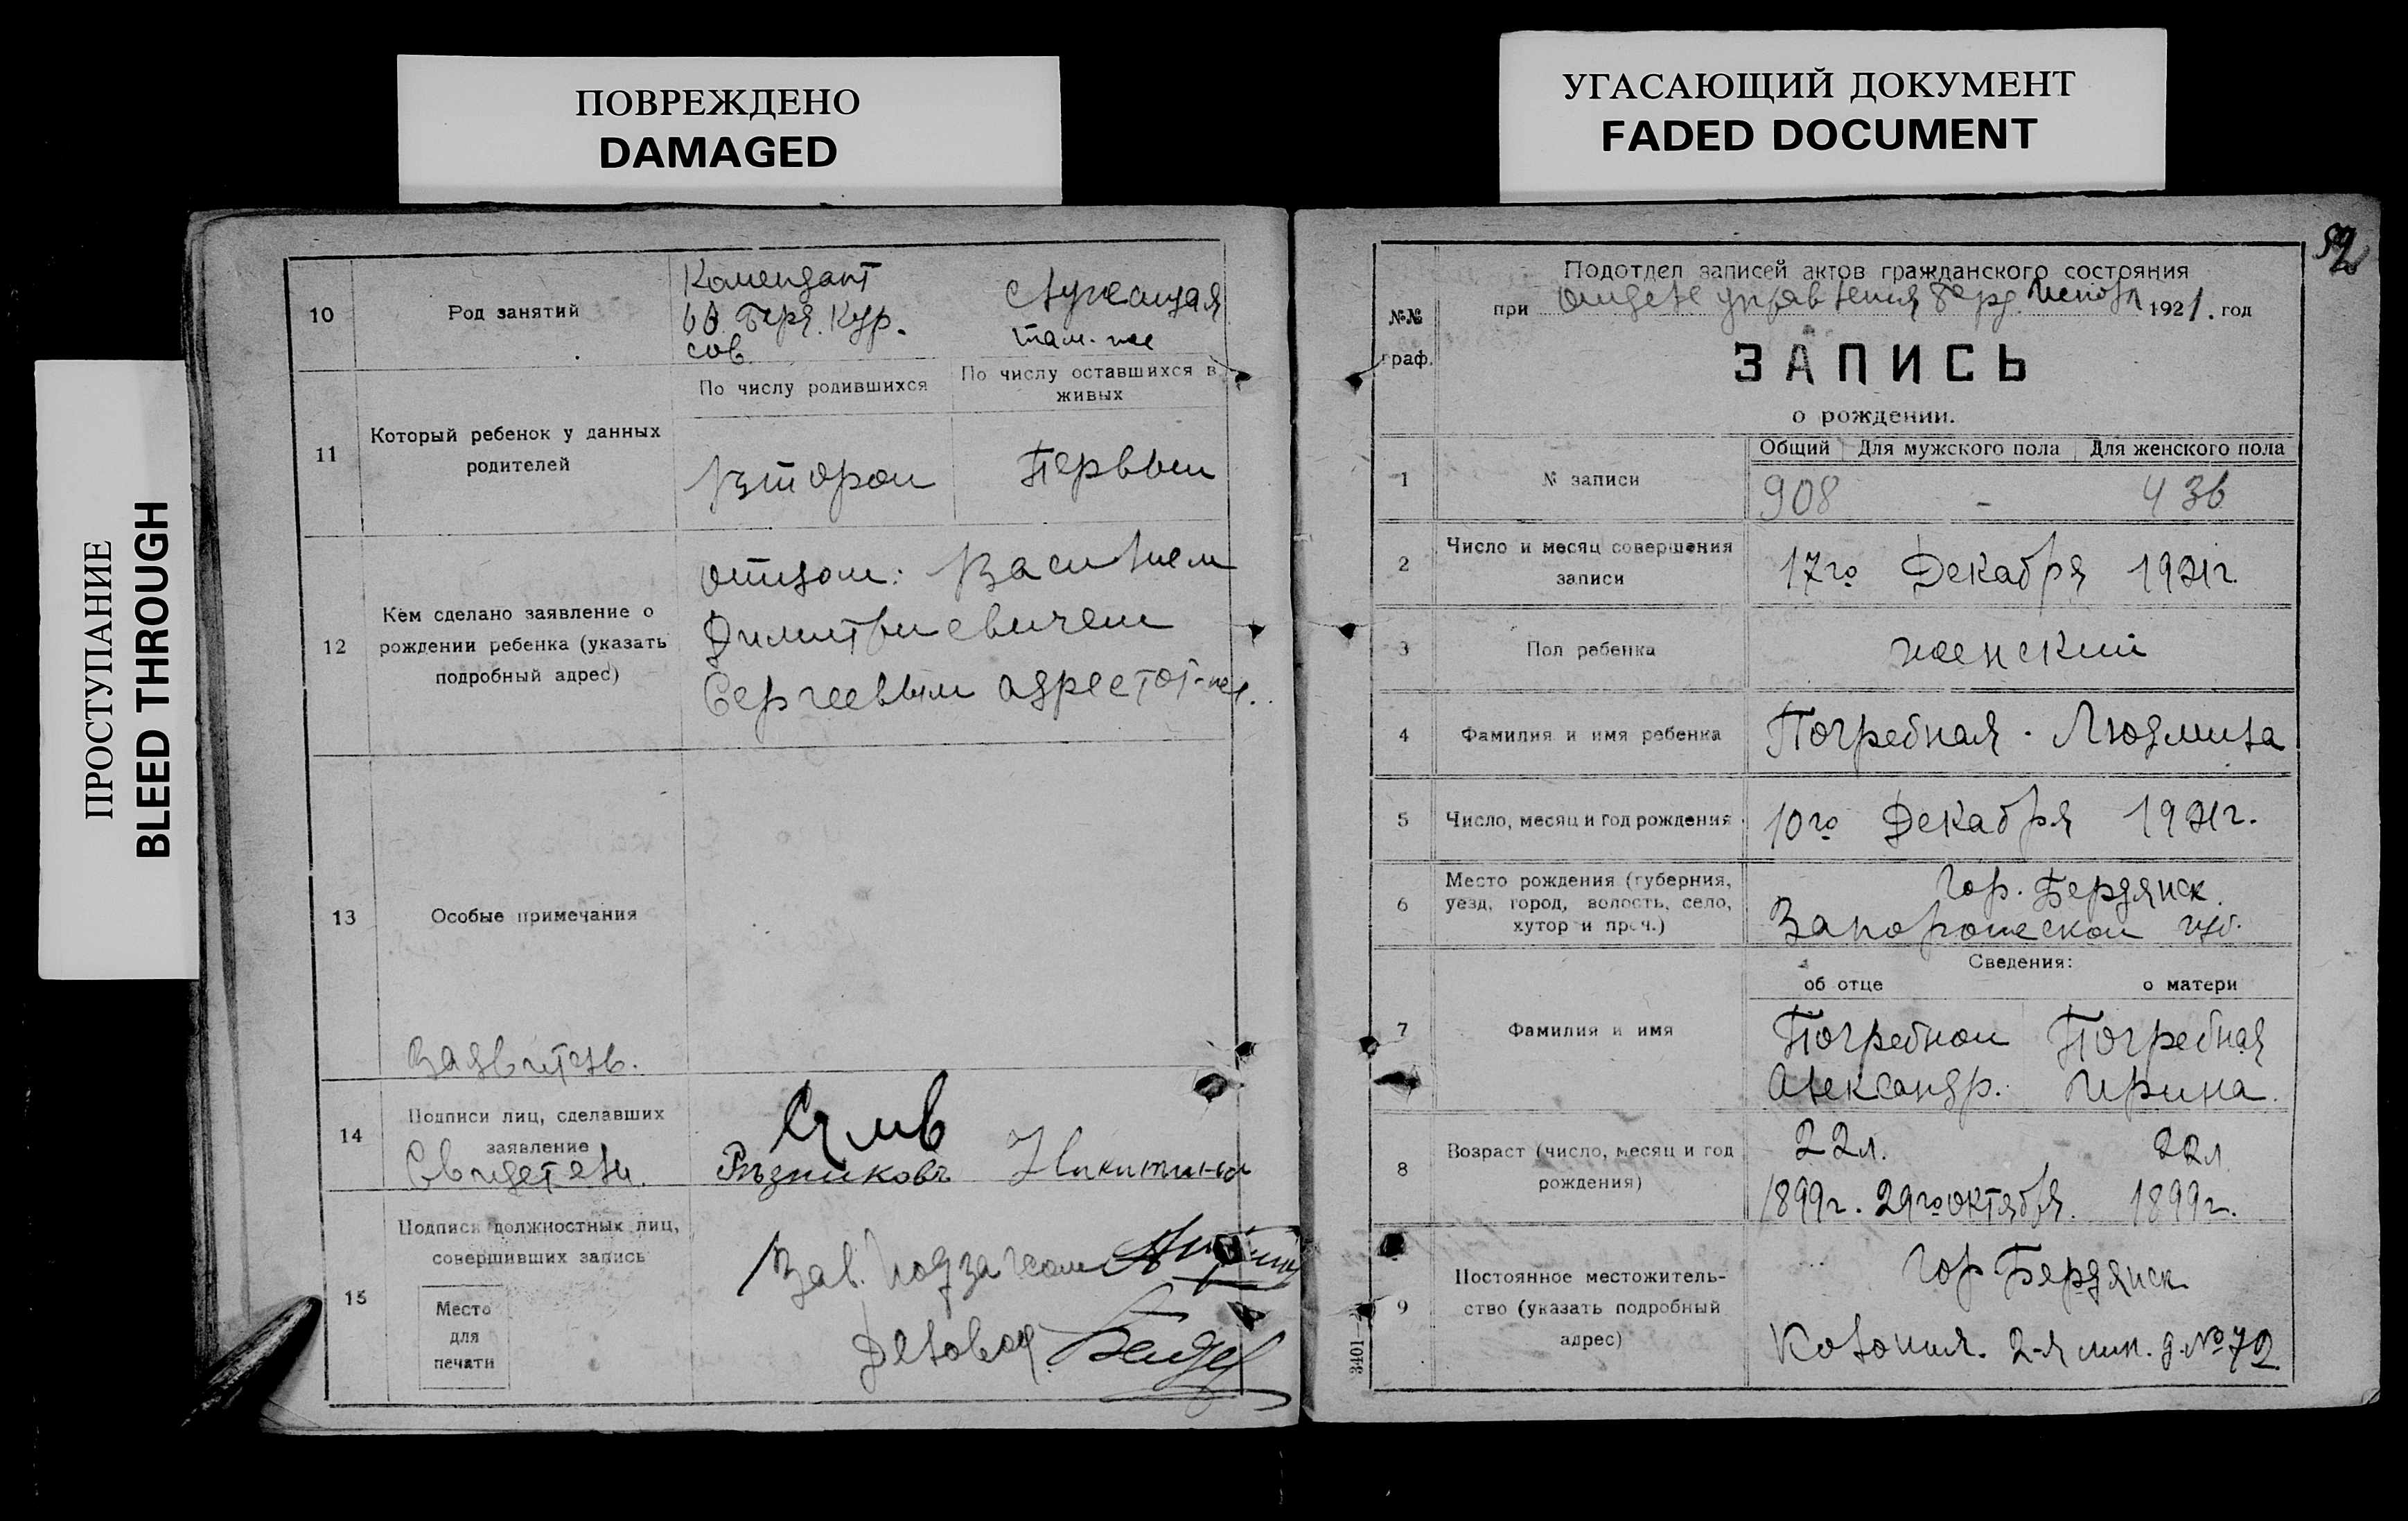 ПОВРЕЖДЕНО
DAMAGED
УГАСАЮЩИЙ ДОКУМЕНТ
FADED DOCUMENT
ПРОСТУПАНИЕ
BLEED THROUGH
10
Род занятий
Комендант
60. Берд. Кур-
сов
Служащая
там-же
11
Который ребенок у данных
родителей
По числу родившихся
По числу оставшихся в
живых
Второй
Первый
12
Кем сделано заявление о
рождении ребенка (указать
подробный адрес)
отцом: Василием
Димитриевичем
Сергеевым адрес тот-же.
13
Особые примечания
Заявитель.
14
Подписи лиц, сделавших
заявление
Свидетели.
Рѣзниковъ Никитина
15
Подписи должностных лиц,
совершивших запись
Место
для
печати
Зав. подзагсом
Деловод.
59
№№
граф.
Подотдел записей актов гражданского состояния
при отделе управления Берд. Исполк 1921. год
ЗАПИСЬ
о рождении.
1
№ записи
Общий Для мужского пола Для женского пола
908 - 436
2
Число и месяц совершения
записи
17го Декабря 1921г.
3
Пол ребенка
женский
4
Фамилия и имя ребенка
Погребная. Людмила
5
Число, месяц и год рождения
10го Декабря 1921г.
6
Место рождения (губерния,
уезд, город, волость, село,
хутор и проч.)
Гор. Бердянск.
Запорожской губ.
Сведения:
об отце о матери
7
Фамилия и имя
Погребной Погребная
Александр. Ирина.
8
Возраст (число, месяц и год
рождения)
22л. 22л
1899г. 29го октября. 1899г.
9
Постоянное местожитель-
ство (указать подробный
адрес)
Гор Бердянск
Колония. 2-я лин. д. №72
3401